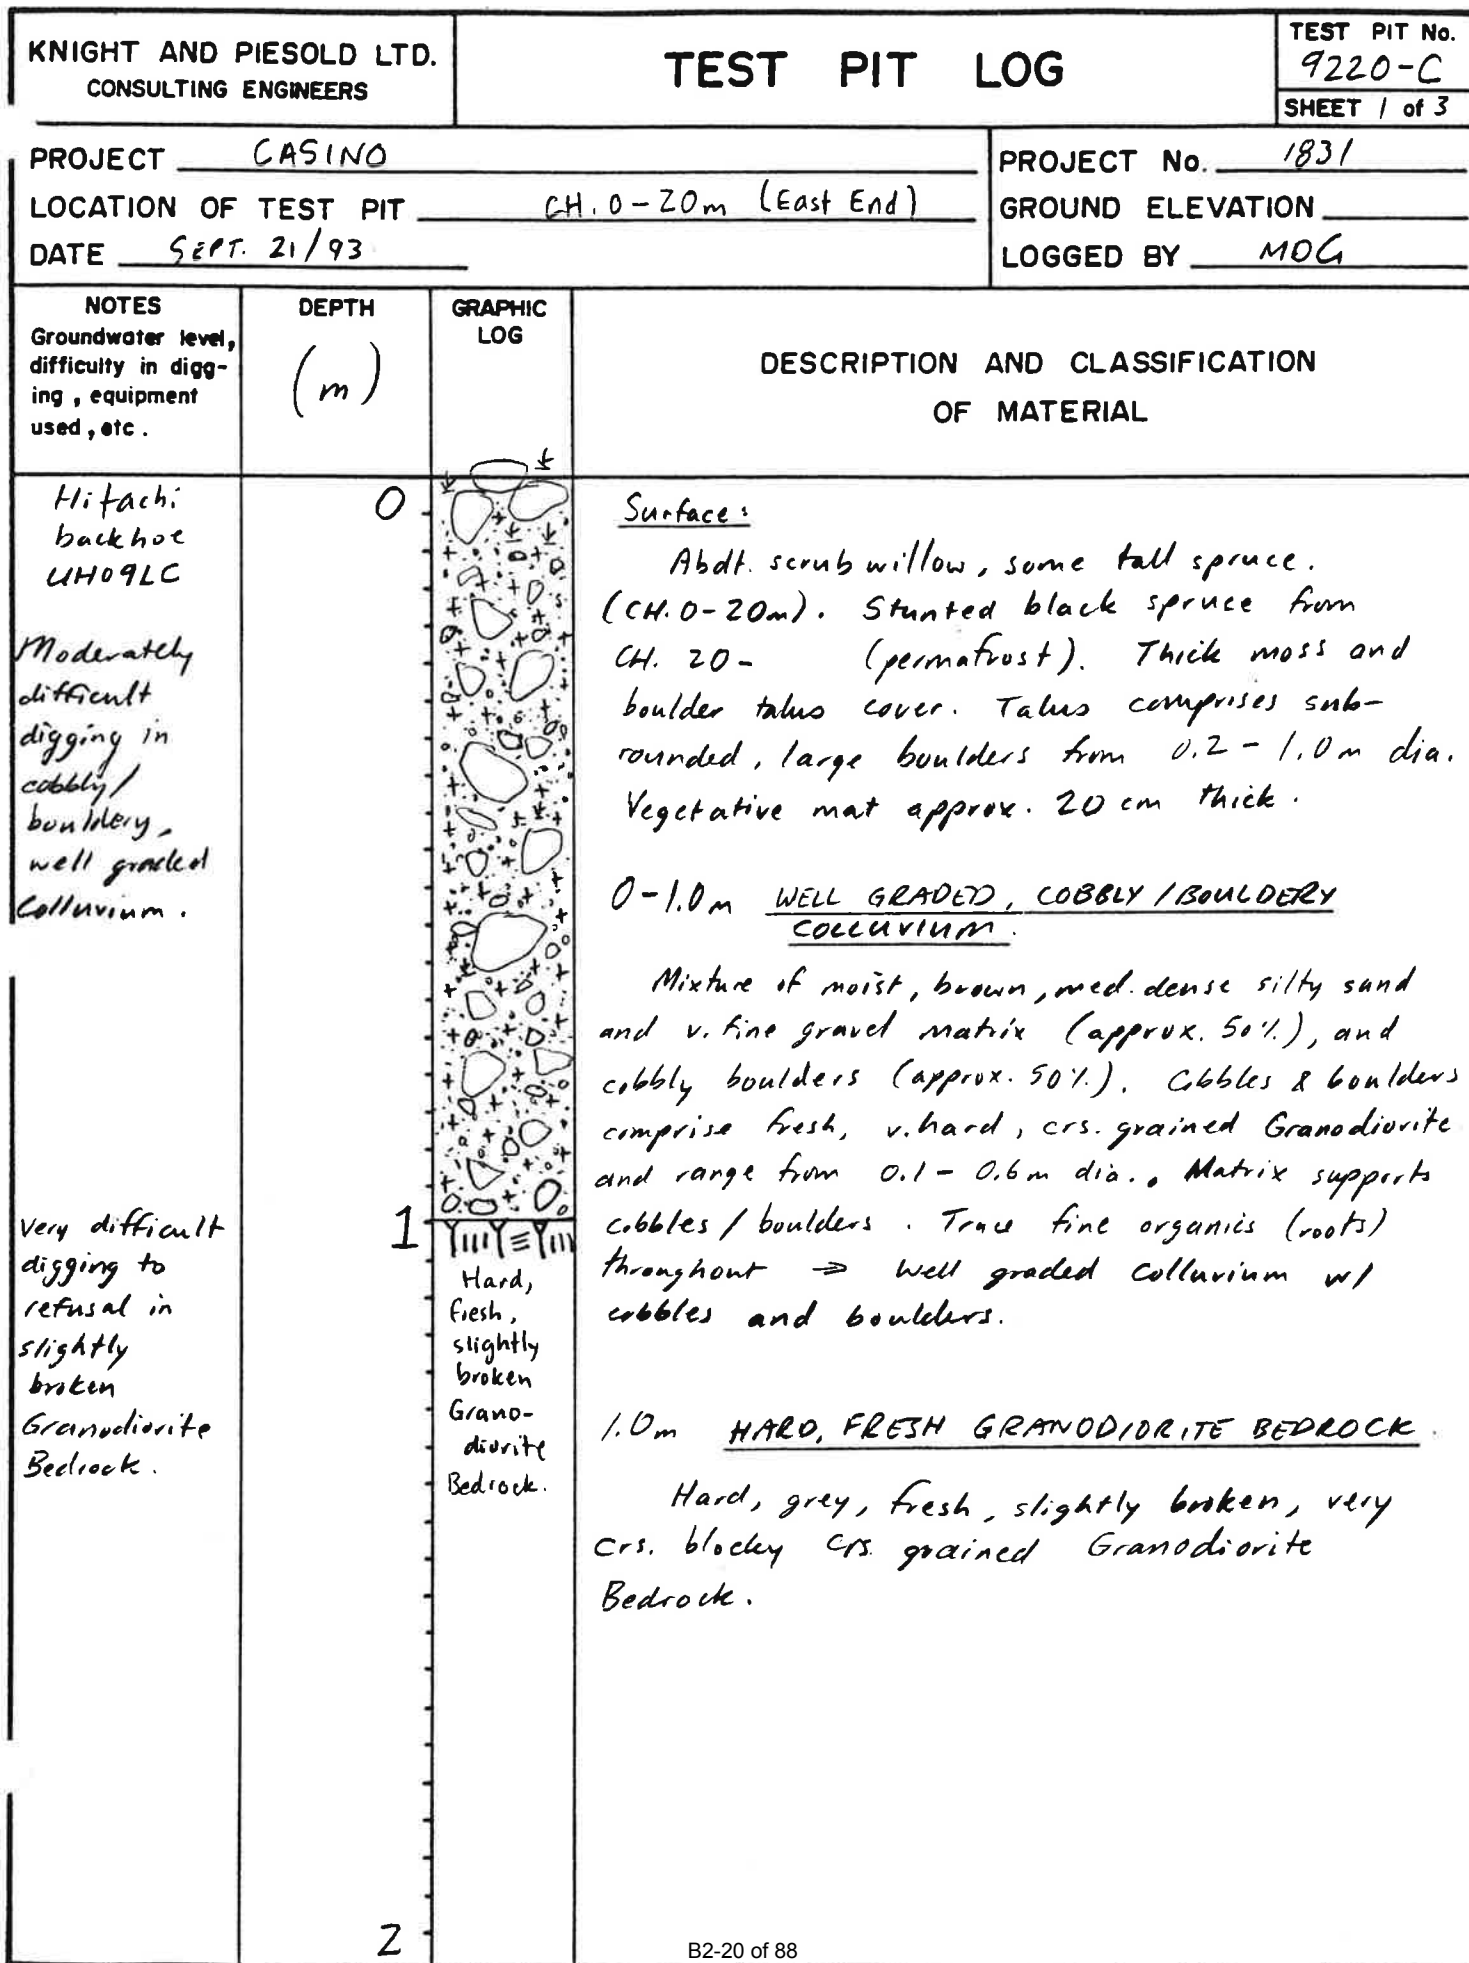 KNIGHT AND PIESOLD LTD.
CONSULTING ENGINEERS
TEST PIT LOG
TEST PIT No.
9220-C
SHEET 1 of 3
PROJECT CASINO
LOCATION OF TEST PIT CH. 0-20m (East End)
DATE SEPT. 21/93
PROJECT No. 1831
GROUND ELEVATION
LOGGED BY MDG
NOTES
Groundwater level,
difficulty in digg-
ing, equipment
used, etc.
DEPTH
(m)
GRAPHIC
LOG
DESCRIPTION AND CLASSIFICATION
OF MATERIAL
Hitachi
backhoe
UH09LC
Moderately
difficult
digging in
cobbly/
bouldery,
well graded
Colluvium.
Very difficult
digging to
refusal in
slightly
broken
Granodiorite
Bedrock.
0
1
2
Hard,
fresh,
slightly
broken
Grano-
diorite
Bedrock.
Surface:
Abdt. scrub willow, some tall spruce.
(CH. 0-20m). Stunted black spruce from
CH. 20- (permafrost). Thick moss and
boulder talus cover. Talus comprises sub-
rounded, large boulders from 0.2 - 1.0m dia.
Vegetative mat approx. 20 cm thick.
0-1.0m WELL GRADED, COBBLY/BOULDERY
COLLUVIUM.
Mixture of moist, brown, med. dense silty sand
and v. fine gravel matrix (approx. 50%), and
cobbly boulders (approx. 50%). Cobbles & boulders
comprise fresh, v. hard, crs. grained Granodiorite
and range from 0.1 - 0.6m dia.. Matrix supports
cobbles/boulders. Trace fine organics (roots)
throughout ⇒ Well graded Colluvium w/
cobbles and boulders.
1.0m HARD, FRESH GRANODIORITE BEDROCK.
Hard, grey, fresh, slightly broken, very
crs. blocky crs. grained Granodiorite
Bedrock.
B2-20 of 88